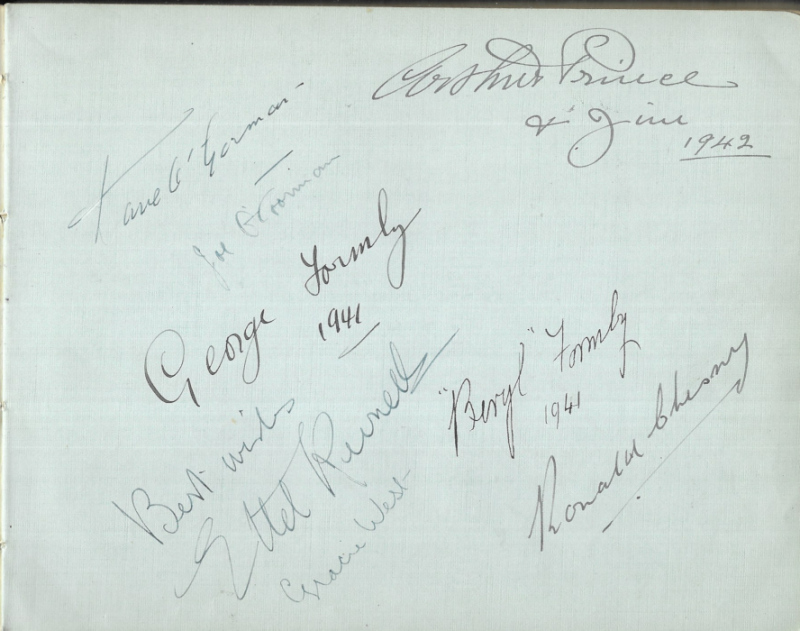 Arthur Prince
& Jim
1942
Dave O'Gorman
Joe O'Gorman
George Formly
1941
"Beryl" Formby
1941
Ronald Chesney
Best wishes
Ethel Revnell
Gracie West